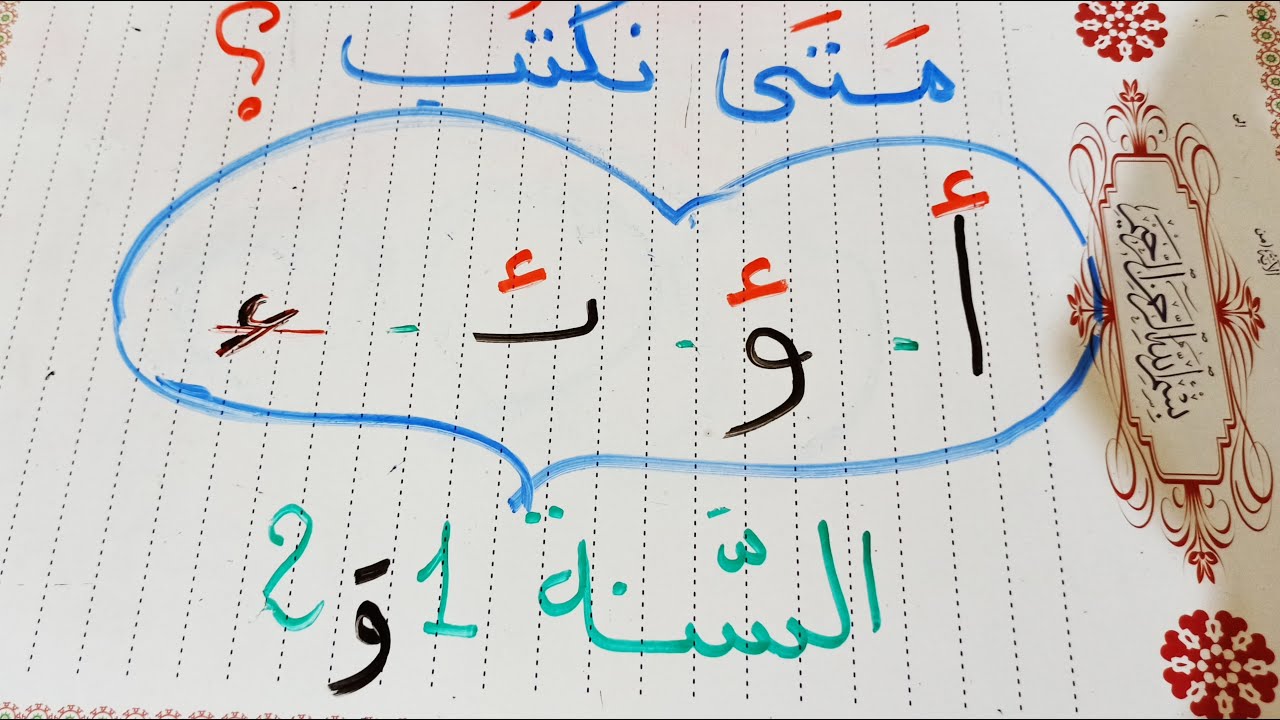 مَتَى نَكْتُب ؟
أ - ؤ - ئ - ء
السَّنة 1 وَ 2
بسم الله الرحمن الرحيم
الى